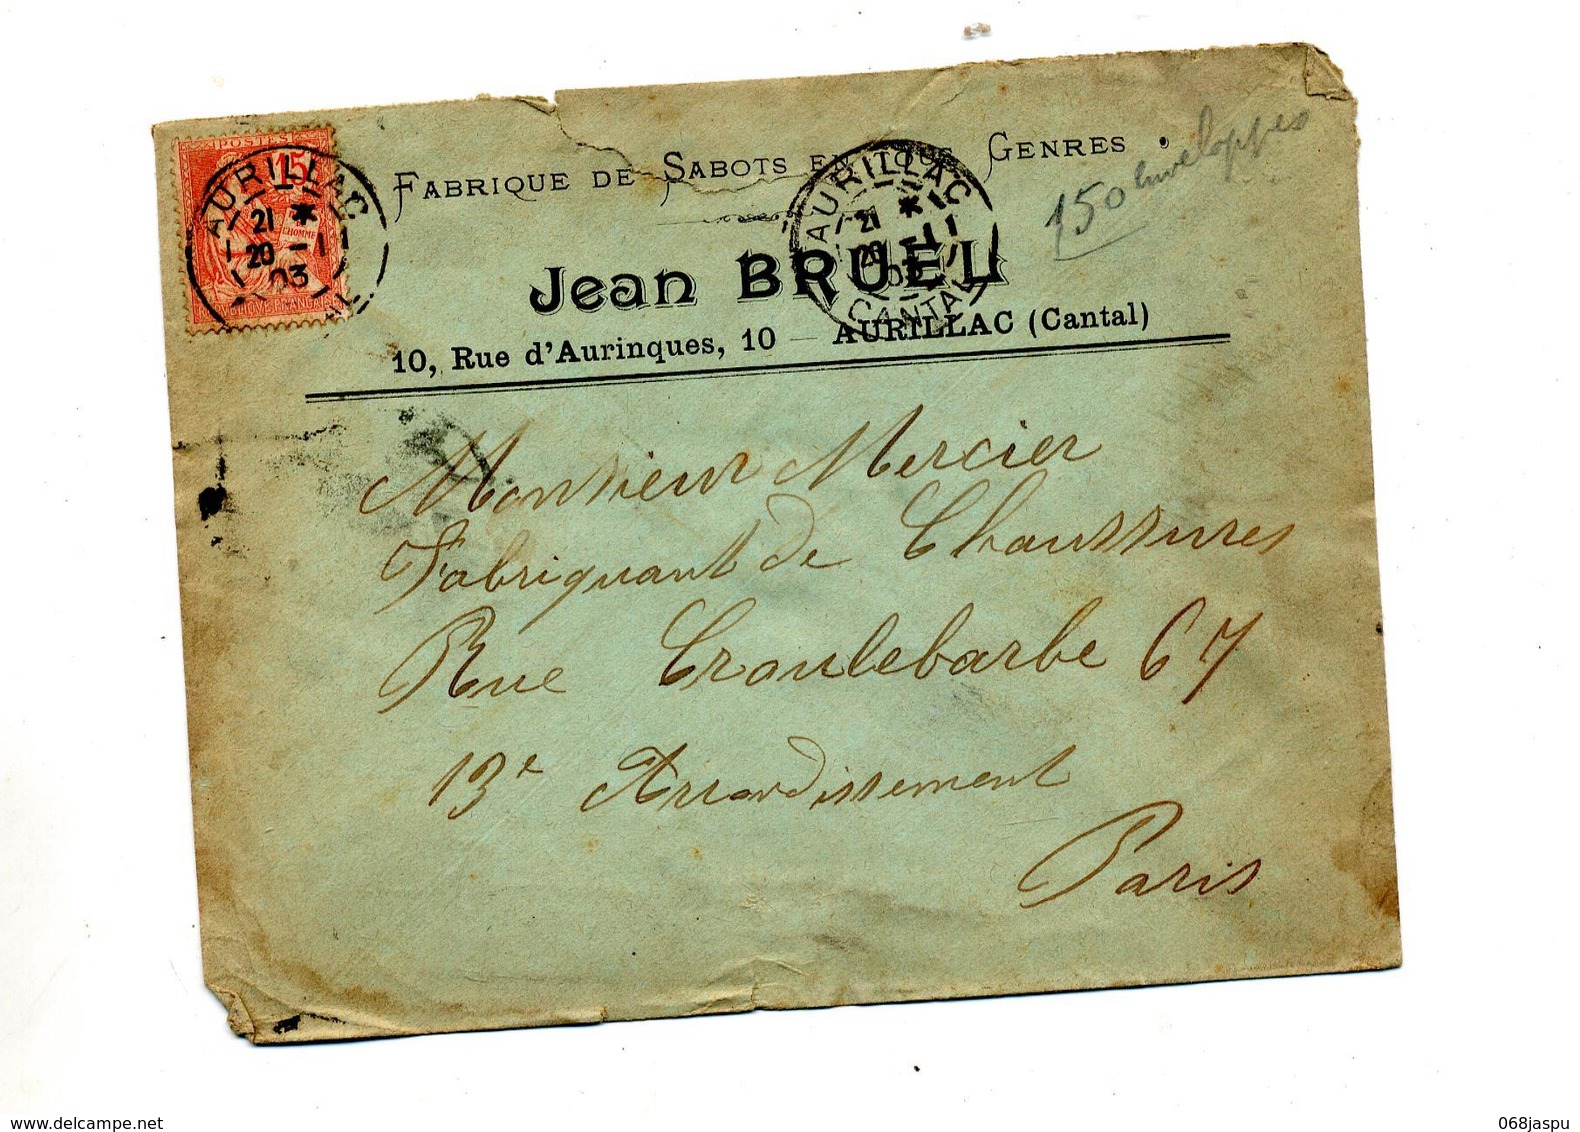 POSTES
15
L'HOMME
REPUBLIQUE FRANCAISE
AURILLAC
21 *
20 - 11
03
AURILLAC
21 *
20 - 11
03
CANTAL
FABRIQUE DE SABOTS EN TOUS GENRES
150 enveloppes
Jean BRUEL
10, Rue d'Aurinques, 10 — AURILLAC (Cantal)
Monsieur Mercier
Fabriquant de Chaussures
Rue Croulebarbe 67
13e Arrondissement
Paris
www.delcampe.net
068jaspu